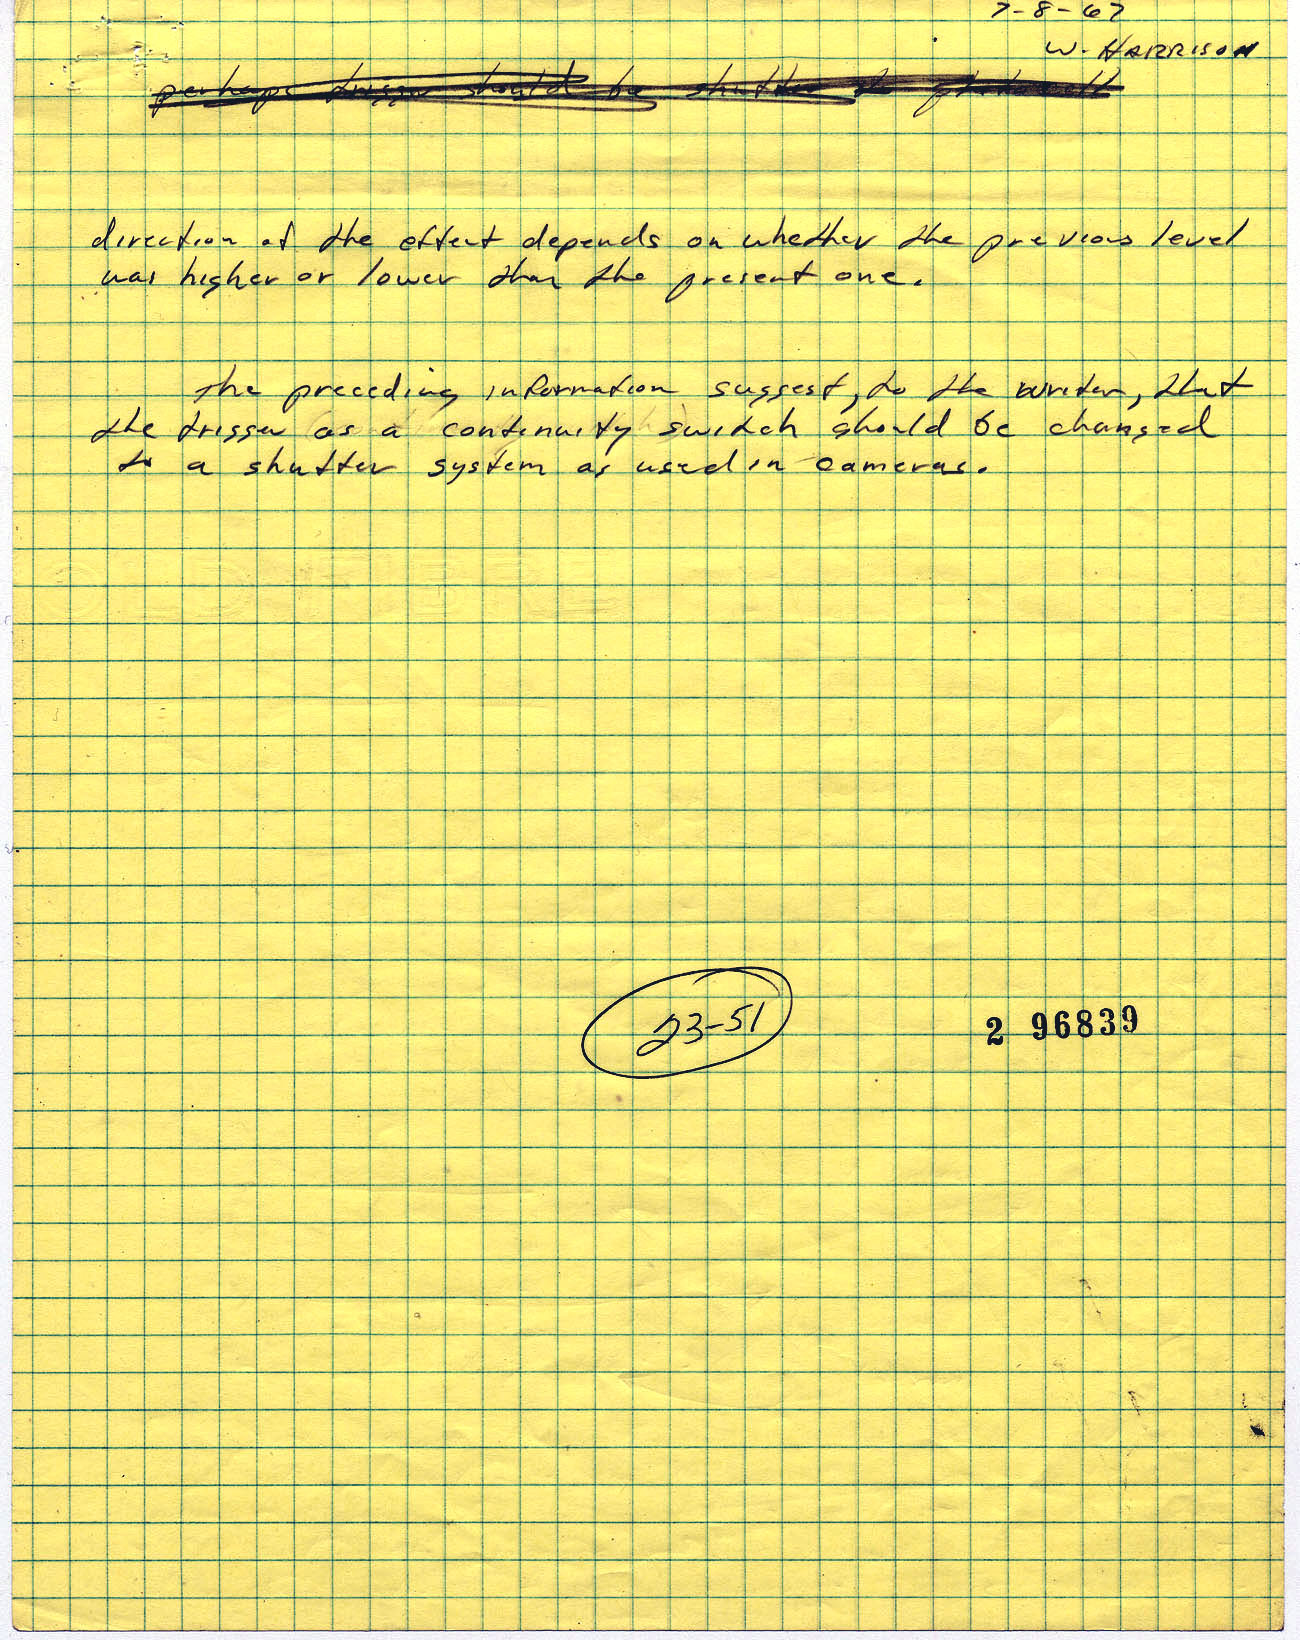 7-8-67
W. HARRISON
perhaps trigger should be shutter to photocell
direction of the effect depends on whether the previous level
was higher or lower than the present one.
The preceding information suggest, to the writer, that
the trigger as a continuity switch should be changed
to a shutter system as used in cameras.
23-51
2 96839